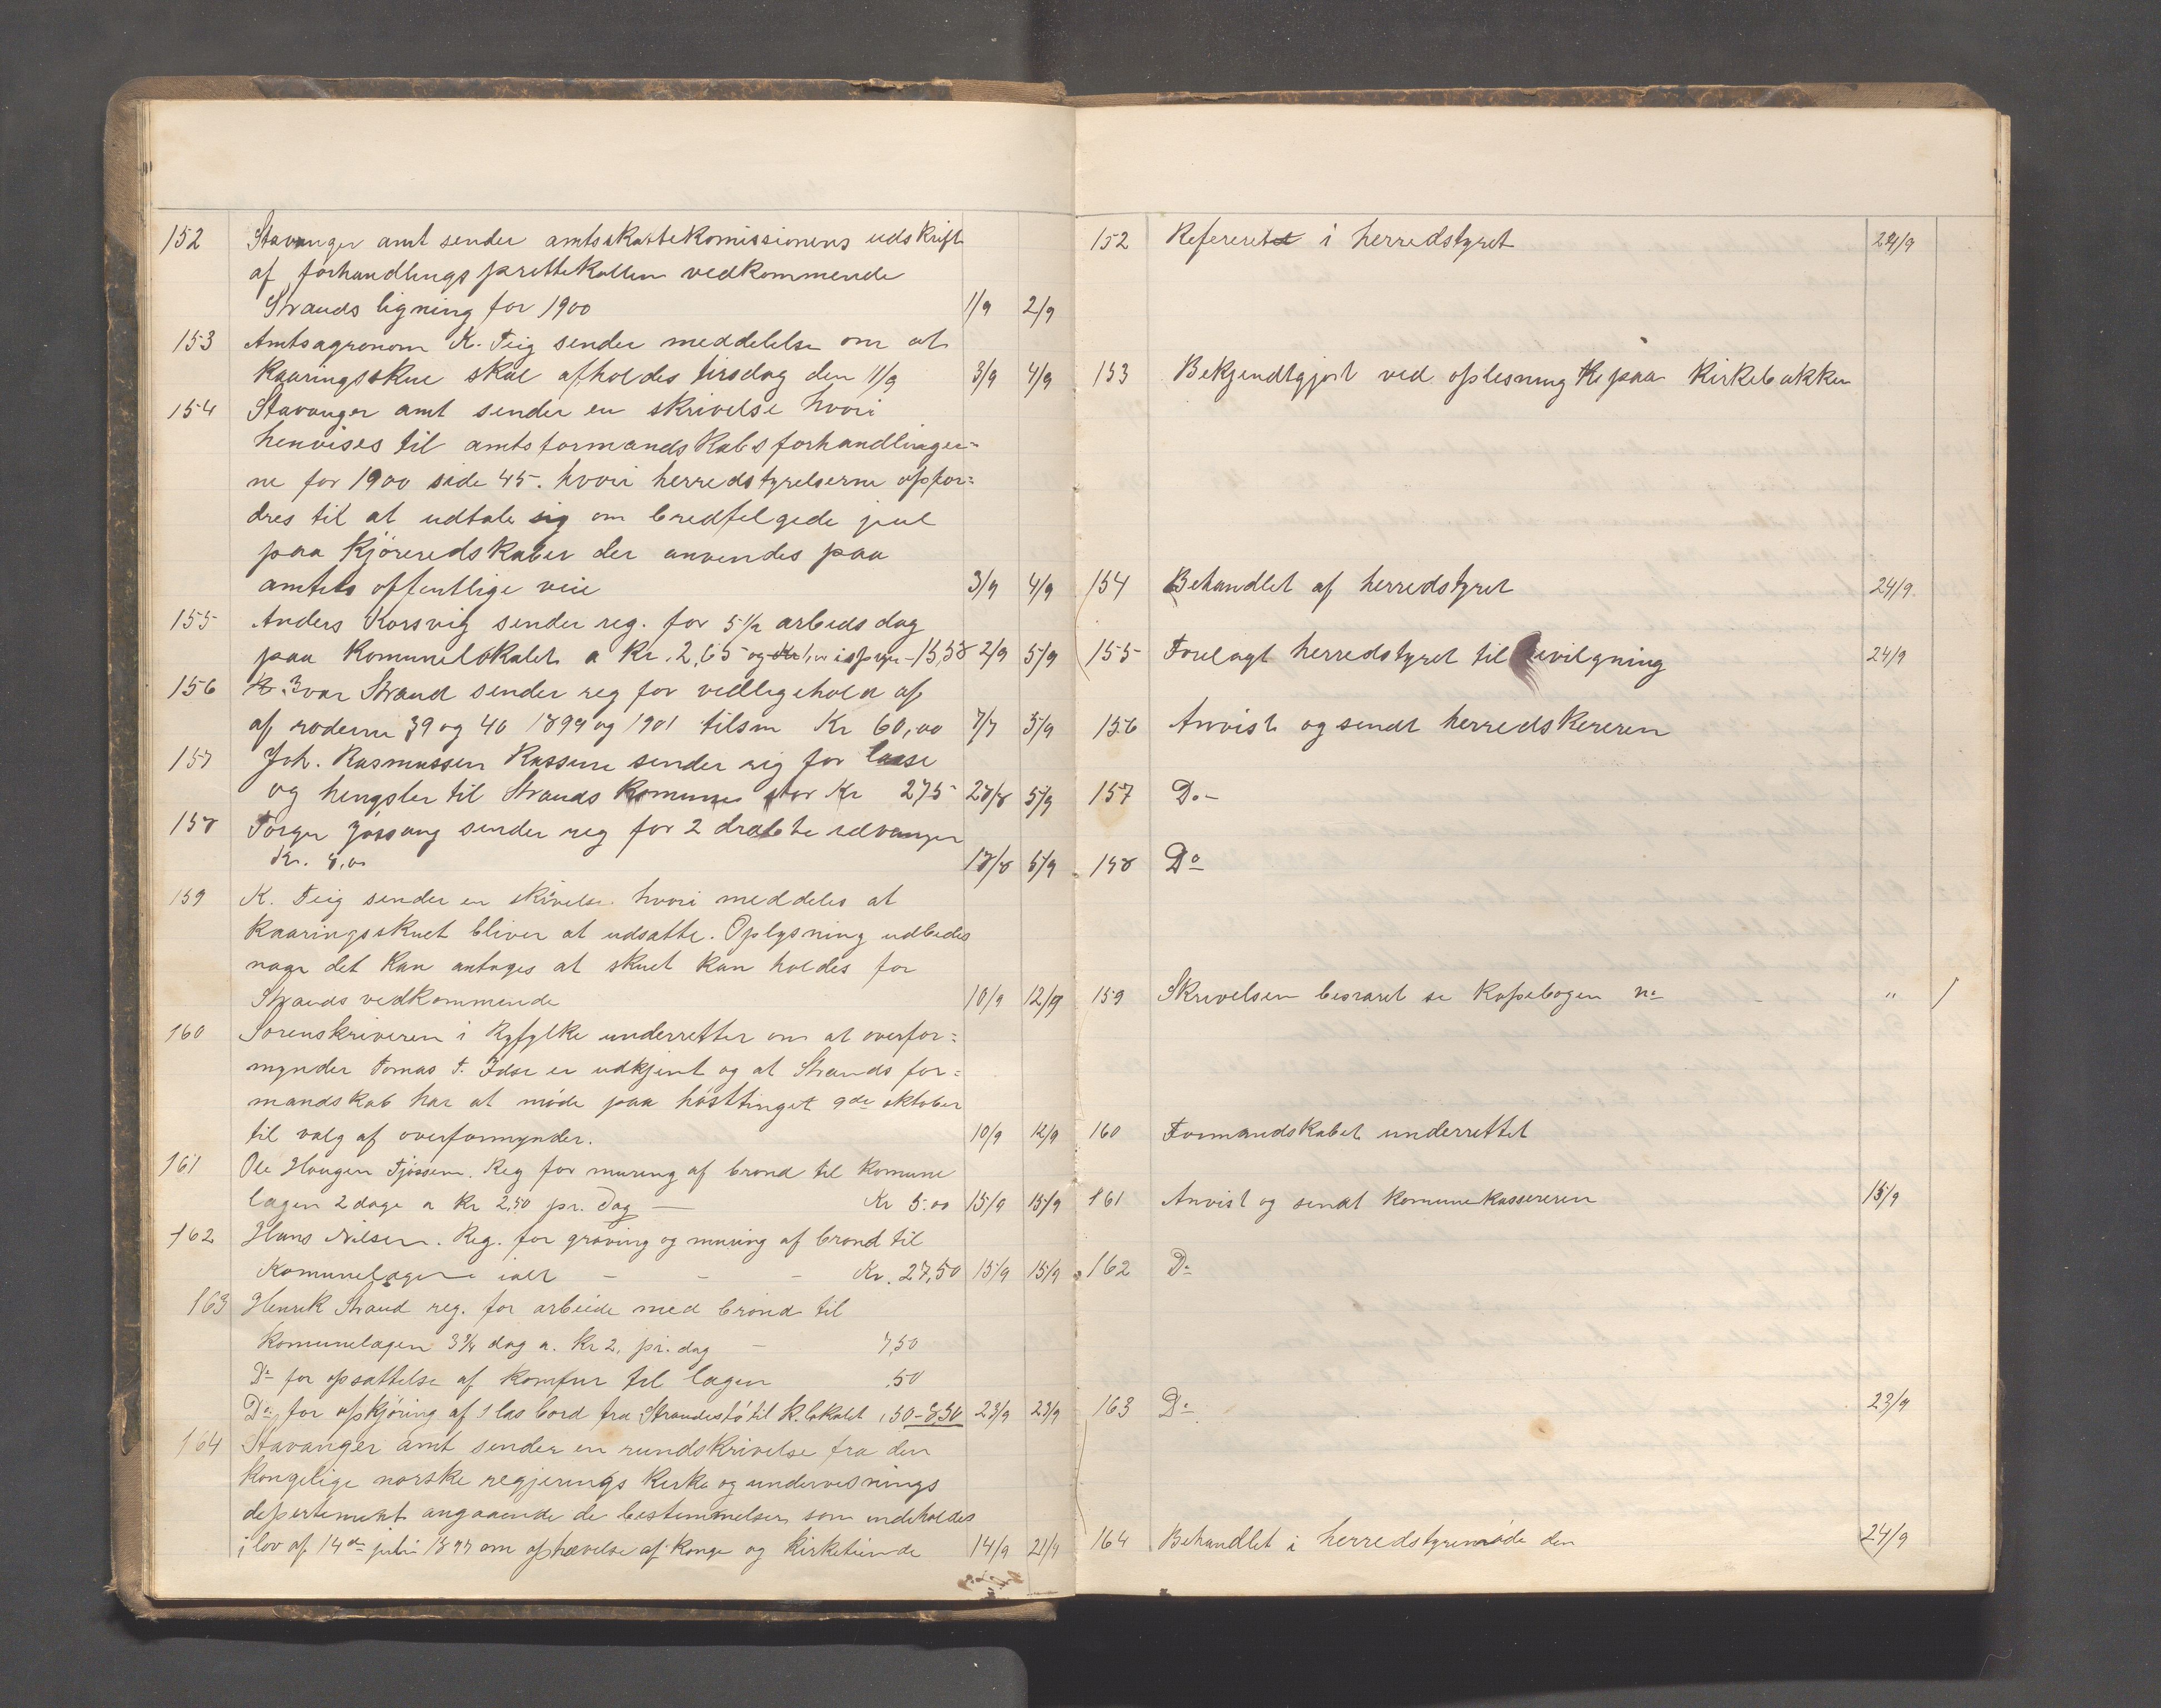 152 Stavanger amt sender amtsskattekomissionens udskrift
af forhandlingsprottekollen vedkommende
Strands ligning for 1900 1/9 2/9
153 Amtsagronom K. Teig sender meddelelse om at
Kaaringsskue skal afholdes tirsdag den 11/9 3/9 4/9
154 Stavanger amt sender en skrivelse hvori
henvises til amtsformandskabsforhandlinger=
ne for 1900 side 45. hvori herredstyrelserne opfor=
dres til at udtale sig om bredfelgede jul
paa Kjøreredskaber der anvendes paa
amtets offentlige veie 3/9 4/9
155 Anders Korsvig sender reg. for 5 1/2 arbeidsdag
paa Komunelokalet a Kr. 2,65 og 15,58 2/9 5/9
156 Ivar Strand sender reg for vedligehold af
af roderne 39 og 40 1899 og 1901 tilsm Kr 60,00 7/7 5/9
157 Joh. Rasmussen Rassene sender reg for laase
og hengsler til Strands Komune stor Kr 2,75 28/8 5/9
158 Torger Jøssang sender reg for 2 dræbte
Kr. 8,00 18/8 5/9
159 K. Teig sender en skrivelse hvori meddeles at
Kaaringsskuet bliver at udsætte. Oplysning udbedes
naar det Kan antages at skuet kan holdes for
Strands vedkommende 10/9 12/9
160 Sorenskriveren i Ryfylke underretter om at overfor=
mynder Tomas T. Idse er udkjent og at Strands for=
mandskab har at møde paa høsttinget 9de oktober
til valg af overformynder. 10/9 12/9
161 Ole Haugen Tjøssem. Reg for muring af brønd til Komune
lægen 2 dage a kr 2,50 pr. Dag — Kr 5.00 15/9 15/9
162 Hans Nilsen. Reg. for graving og muring af brønd til
Komunelægen ialt - - - Kr. 27,50 15/9 15/9
163 Henrik Strand reg. for arbeide med brønd til
Komunelægen 3 3/4 dag a. kr 2. pr. dag - 7,50
Do for opsættelse af Komfur til lægen .50
Do for opkjøring af 1 las bord fra Strandestø til K. lokalet ,50 - 8,50 23/9 23/9
164 Stavanger amt sender en rundskrivelse fra den
Kongelige norske regjerings Kirke og undervisnings
departement angaaende de bestemmelser som indeholdes
i lov af 14de juli 1897 om ophævelse af Konge og Kirketiende 14/9 21/9
152 Refereret i herredstyret 24/9
153 Bekjendtgjort ved oplesning paa Kirkebakken
154 Behandlet af herredstyret 24/9.
155 Forelagt herredstyret til bevilgning 24/9
156 Anvist og sendt herredskereren
157 Do -
158 Do
159 Skrivelsen besvaret se Kopibogen No - "
160 Formandskabet underrettet
161 Anvist og sendt Komunekassereren 15/9
162 Do
163 Do 23/9
164 Behandlet i herredstyremøde den 24/9